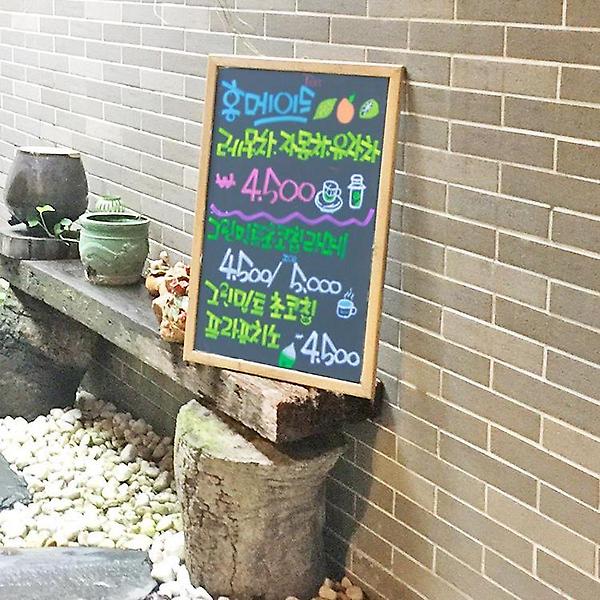 홈메이드
레몬차.자몽차.유자차
₩4.500
그린민트초코칩라떼
4.500/5.000
그린민트 초코칩
프라푸치노 4.500